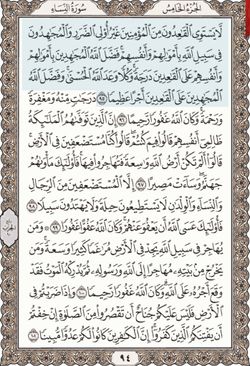 الجُزْءُ الخَامِسُ سُورَةُ النِّسَاءِ
لَّا يَسْتَوِى ٱلْقَٰعِدُونَ مِنَ ٱلْمُؤْمِنِينَ غَيْرُ أُو۟لِى ٱلضَّرَرِ وَٱلْمُجَٰهِدُونَ
فِى سَبِيلِ ٱللَّهِ بِأَمْوَٰلِهِمْ وَأَنفُسِهِمْ فَضَّلَ ٱللَّهُ ٱلْمُجَٰهِدِينَ بِأَمْوَٰلِهِمْ
وَأَنفُسِهِمْ عَلَى ٱلْقَٰعِدِينَ دَرَجَةً وَكُلًّا وَعَدَ ٱللَّهُ ٱلْحُسْنَىٰ وَفَضَّلَ ٱللَّهُ
ٱلْمُجَٰهِدِينَ عَلَى ٱلْقَٰعِدِينَ أَجْرًا عَظِيمًا ٩٥ دَرَجَٰتٍ مِّنْهُ وَمَغْفِرَةً
وَرَحْمَةً وَكَانَ ٱللَّهُ غَفُورًا رَّحِيمًا ٩٦ إِنَّ ٱلَّذِينَ تَوَفَّىٰهُمُ ٱلْمَلَٰٓئِكَةُ
ظَالِمِىٓ أَنفُسِهِمْ قَالُوا۟ فِيمَ كُنتُمْ قَالُوا۟ كُنَّا مُسْتَضْعَفِينَ فِى ٱلْأَرْضِ
قَالُوٓا۟ أَلَمْ تَكُنْ أَرْضُ ٱللَّهِ وَٰسِعَةً فَتُهَاجِرُوا۟ فِيهَا فَأُو۟لَٰٓئِكَ مَأْوَىٰهُمْ
جَهَنَّمُ وَسَآءَتْ مَصِيرًا ٩٧ إِلَّا ٱلْمُسْتَضْعَفِينَ مِنَ ٱلرِّجَالِ
وَٱلنِّسَآءِ وَٱلْوِلْدَٰنِ لَا يَسْتَطِيعُونَ حِيلَةً وَلَا يَهْتَدُونَ سَبِيلًا ٩٨
فَأُو۟لَٰٓئِكَ عَسَى ٱللَّهُ أَن يَعْفُوَ عَنْهُمْ وَكَانَ ٱللَّهُ عَفُوًّا غَفُورًا ٩٩ وَمَن
يُهَاجِرْ فِى سَبِيلِ ٱللَّهِ يَجِدْ فِى ٱلْأَرْضِ مُرَٰغَمًا كَثِيرًا وَسَعَةً وَمَن
يَخْرُجْ مِنۢ بَيْتِهِۦ مُهَاجِرًا إِلَى ٱللَّهِ وَرَسُولِهِۦ ثُمَّ يُدْرِكْهُ ٱلْمَوْتُ فَقَدْ
وَقَعَ أَجْرُهُۥ عَلَى ٱللَّهِ وَكَانَ ٱللَّهُ غَفُورًا رَّحِيمًا ١٠٠ وَإِذَا ضَرَبْتُمْ فِى
ٱلْأَرْضِ فَلَيْسَ عَلَيْكُمْ جُنَاحٌ أَن تَقْصُرُوا۟ مِنَ ٱلصَّلَوٰةِ إِنْ خِفْتُمْ
أَن يَفْتِنَكُمُ ٱلَّذِينَ كَفَرُوٓا۟ إِنَّ ٱلْكَٰفِرِينَ كَانُوا۟ لَكُمْ عَدُوًّا مُّبِينًا ١٠١
٩٤